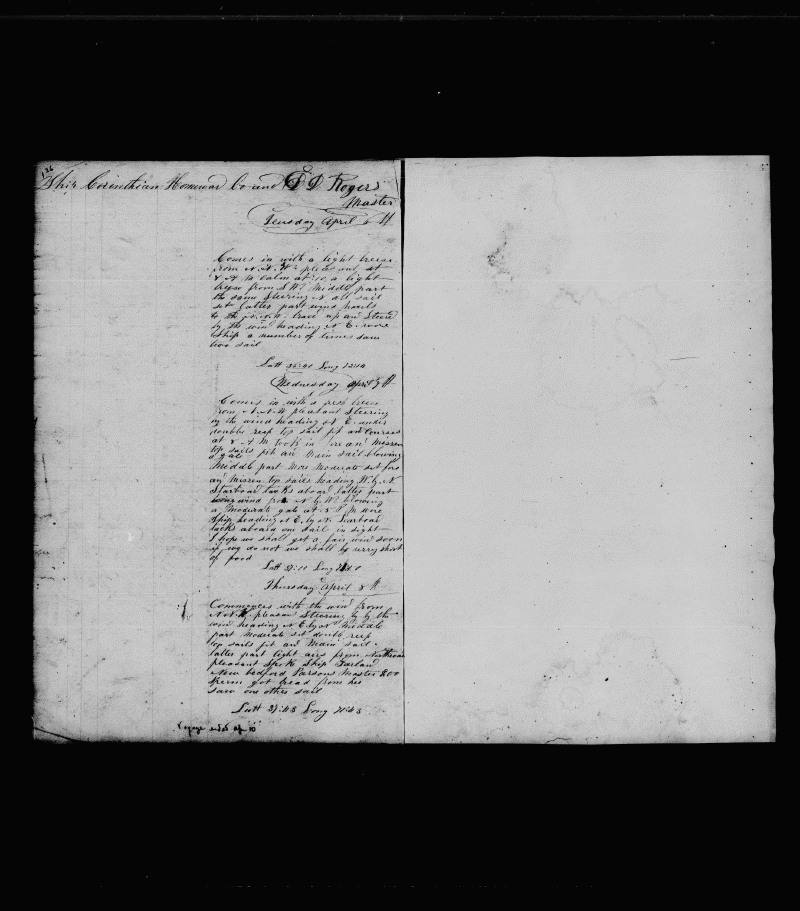 126
Ship Corinthian Homeward Bound E D Roger
Master
Teusday April 6 th
Comes in with a light breese
from N.N.W. pleasant at
8 A M calm at 10 a light
brese from S W. Middle part
the same Steering N all sail
set latter part wind hauls
to the N.N.W. brace up an Steerd
by the win heading N E. wore
Ship a number of times saw
two sail
Latt Long
Wednesday April 7 th
Comes in with a fresh brese
from N.N.W pleasant Steering
by the wind heading N E. under
double reef top sail jib an courses
at 8 A M took in fore an Missen
top sails jib an Main sail blowing
a gale
Middle part More Moderate set fore
an Missen top sails heading W. by N
Starboard tacks aboard latter part
wind from N by W. blowing
a Moderate gale at P M wore
Ship heading N E. by N Larboar
tacks aboard one Sail in sight
I hope we shall get a fair win soon
if we do not we shall be verry short
of food
Latt Long
Thursday April 8 th
Commences with the win from
N.N.W. pleasan Steering by the
win heading N E. by N Middle
part Moderate set double reef
top sails jib an Main sail
latter part light airs from Northward
pleasant Spoke Ship
New bedford Parsons Master 800
Sperm got bread from her
Saw one other sail
Latt 37:48 Long 71:43
Voyage ended Ap 10